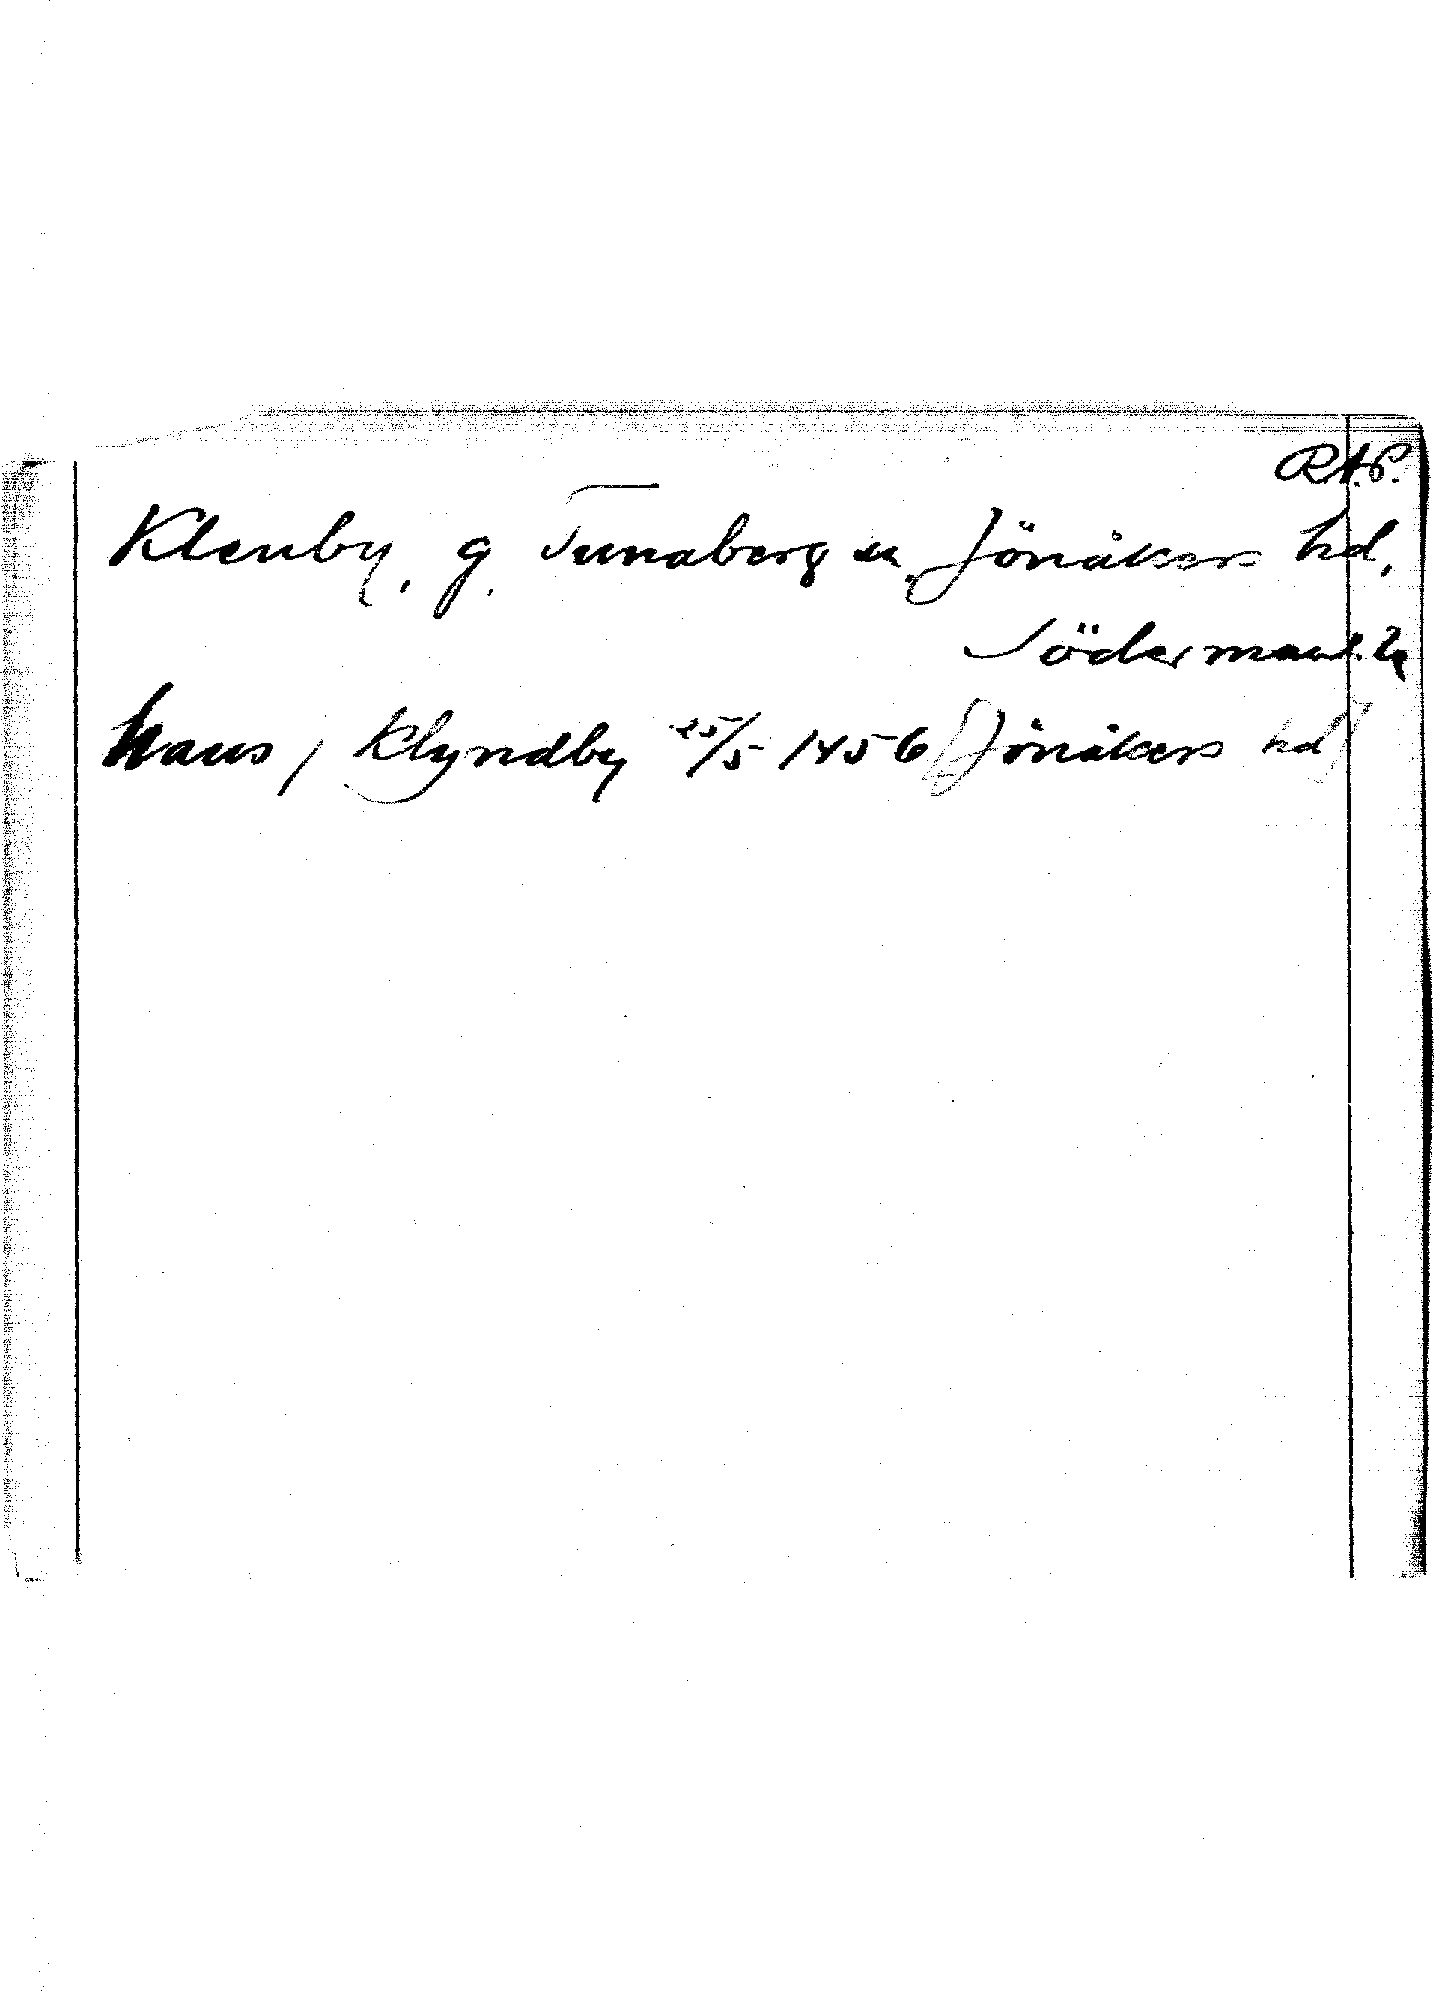 RAP.
Klenby, g. Tunaberg sn. Jönåkers hd,
Södermanl.
hans i Klyndby 25/5 1456 [Jönåkers hd]